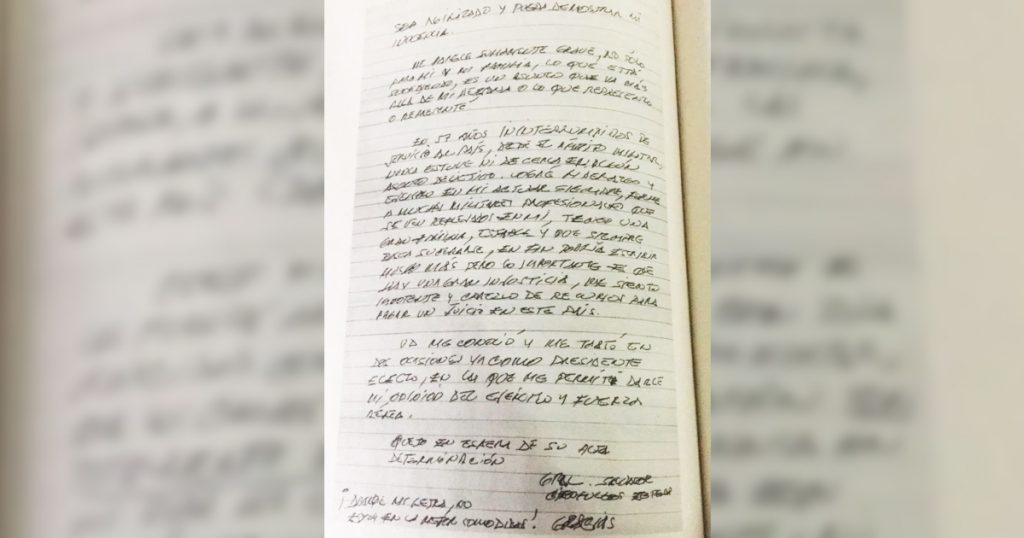 SEA AGILIZADO Y PUEDA DEMOSTRAR MI
INOCENCIA.
ME PARECE SUMAMENTE GRAVE, NO SÓLO
PARA MI Y MI FAMILIA, LO QUE ESTÁ
SUCEDIENDO, ES UN ASUNTO QUE VA MÁS
ALLÁ DE MI PERSONA O LO QUE REPRESENTO
O REPRESENTÉ,
EN 57 AÑOS ININTERRUMPIDOS DE
SERVICIO AL PAÍS, DESDE EL ÁMBITO MILITAR,
NUNCA ESTUVE NI DE CERCA EN ALGÚN
ASUNTO DELICTIVO. LIDERAZGO Y
EJEMPLO EN MI ACTUAR SIEMPRE, FORMÉ
A MUCHOS MILITARES PROFESIONALES QUE
SE VEN REFLEJADOS EN MI, TENGO UNA
GRAN FAMILIA, ESTABLE Y QUE SIEMPRE
BUSCA SUPERARSE, EN FIN PODRÍA ESCRIBIR
MUCHO MÁS PERO LO IMPORTANTE ES QUE
HAY UNA GRAN INJUSTICIA, ME SIENTO
IMPOTENTE Y CAREZCO DE RECURSOS PARA
PAGAR UN JUICIO EN ESTE PAÍS.
UD ME CONOCIÓ Y ME TRATÓ EN
DOS OCASIONES YA COMO PRESIDENTE
ELECTO, EN LA QUE ME PERMITÍ DARLE
MI OPINIÓN DEL EJÉRCITO Y FUERZA
AÉREA.
QUEDO EN ESPERA DE SU ALTA
DETERMINACIÓN
GRAL. SALVADOR
CIENFUEGOS ZEPEDA
¡ MI LETRA, NO
ESTOY EN LA MEJOR COMODIDAD! GRACIAS